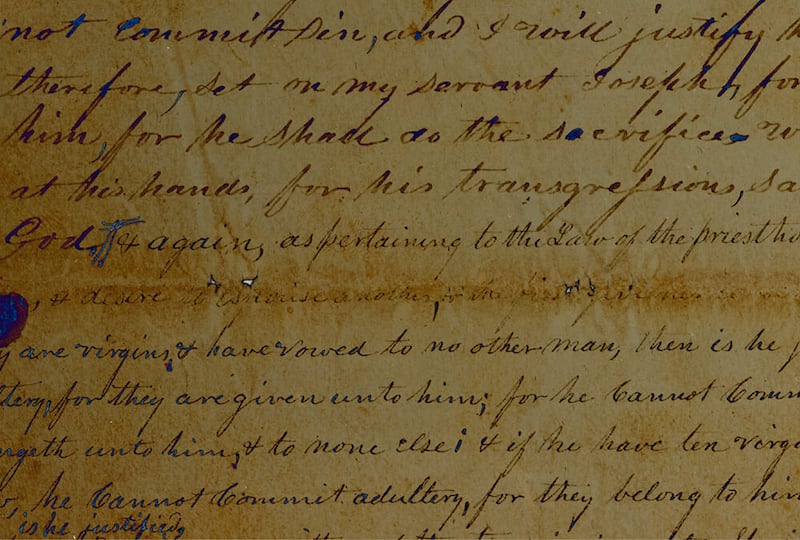 not commit sin, and I will justify
therefore, set on my servant Joseph, for
him, for he shall do the sacrifice
at his hands, for his transgressions, sa
God. & again, as pertaining to the Law of the priestho
, & desire to espouse another, & the first give her
y are virgins, & have vowed to no other man, then is he
ltery, for they are given unto him; for he Cannot Comm
ngeth unto him, & to none else; & if he have ten virg
he Cannot Commit adultery, for they belong to him
is he justified,